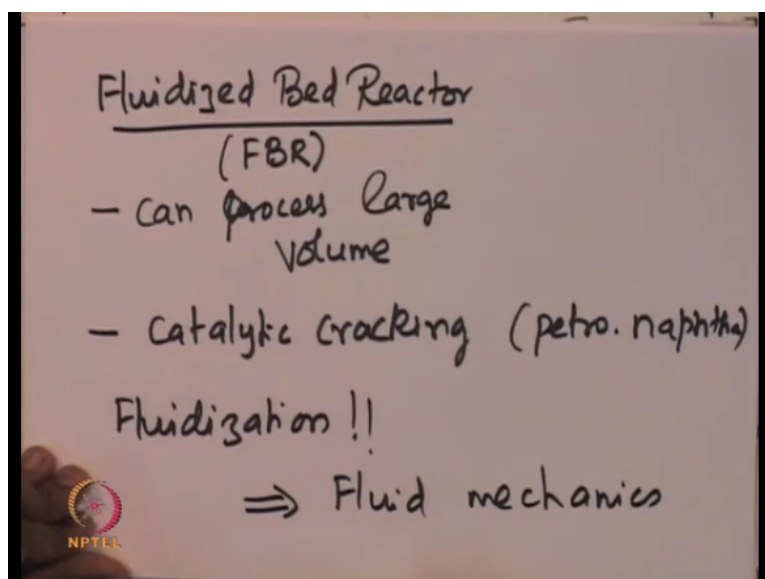 Fluidized Bed Reactor
(FBR)
- Can process large
volume
- Catalytic cracking (petro. naphtha)
Fluidization !!
⇒ Fluid mechanics
NPTEL